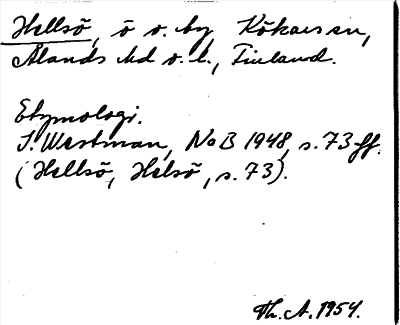 Hellsö, ö o. by, Kökars sn,
Ålands hd o. l., Finland.
Etymologi.
I. Westman, NoB 1948, s. 73 ff.
(Hellsö, Helsö, s. 73).
Th. A. 1954.